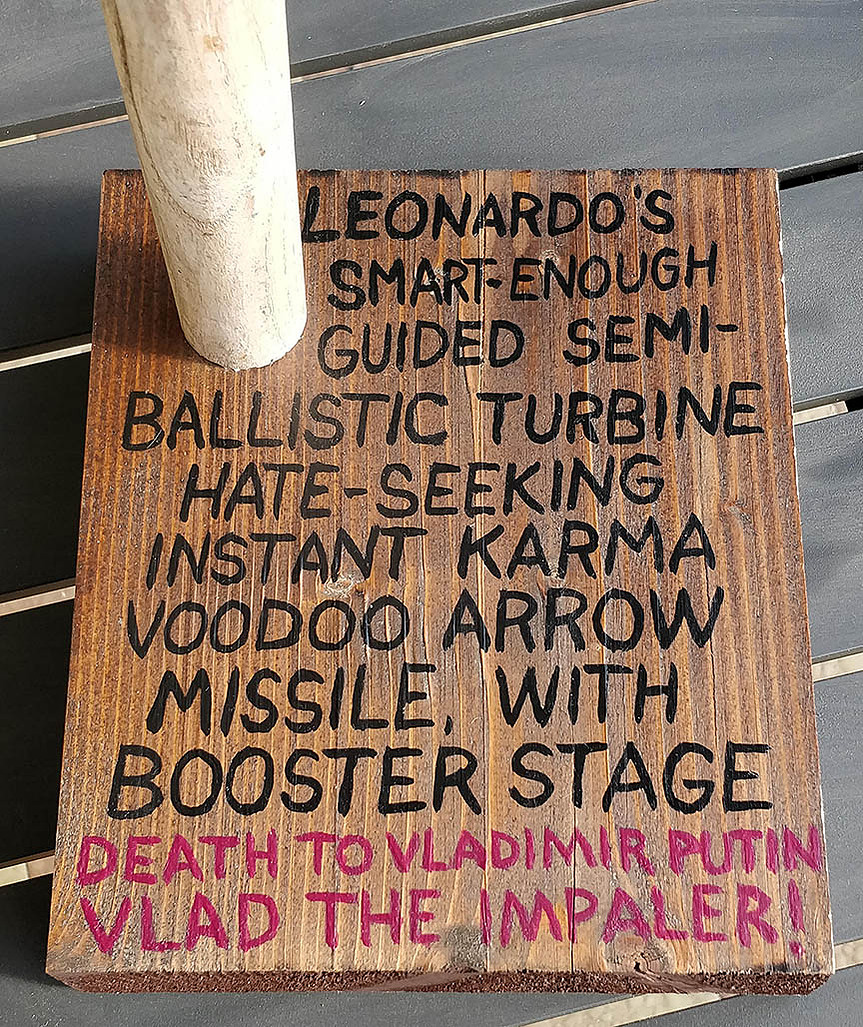 LEONARDO'S
SMART-ENOUGH
GUIDED SEMI-
BALLISTIC TURBINE
HATE-SEEKING
INSTANT KARMA
VOODOO ARROW
MISSILE, WITH
BOOSTER STAGE
DEATH TO VLADIMIR PUTIN
VLAD THE IMPALER!